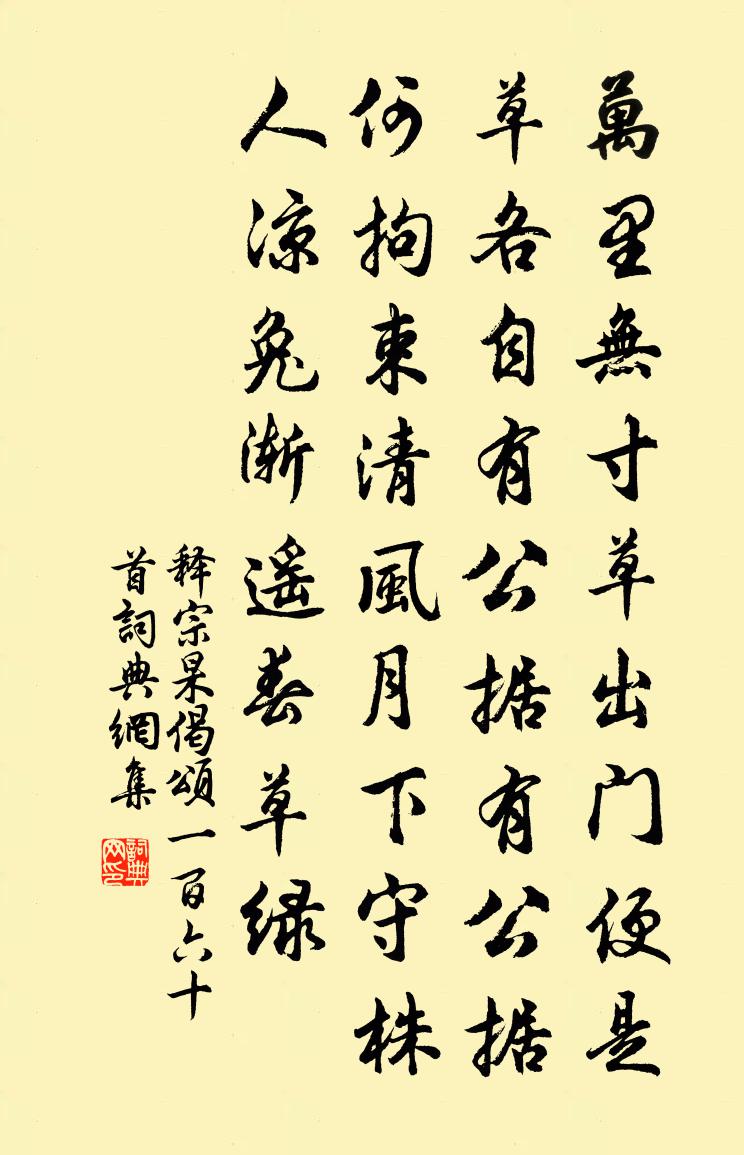 萬里無寸草出门便是
草各自有公据有公据
何拘束清風月下守株
人凉兔渐遥春草绿
释宗杲偈頌一百六十
首詞典網集
詞典網印